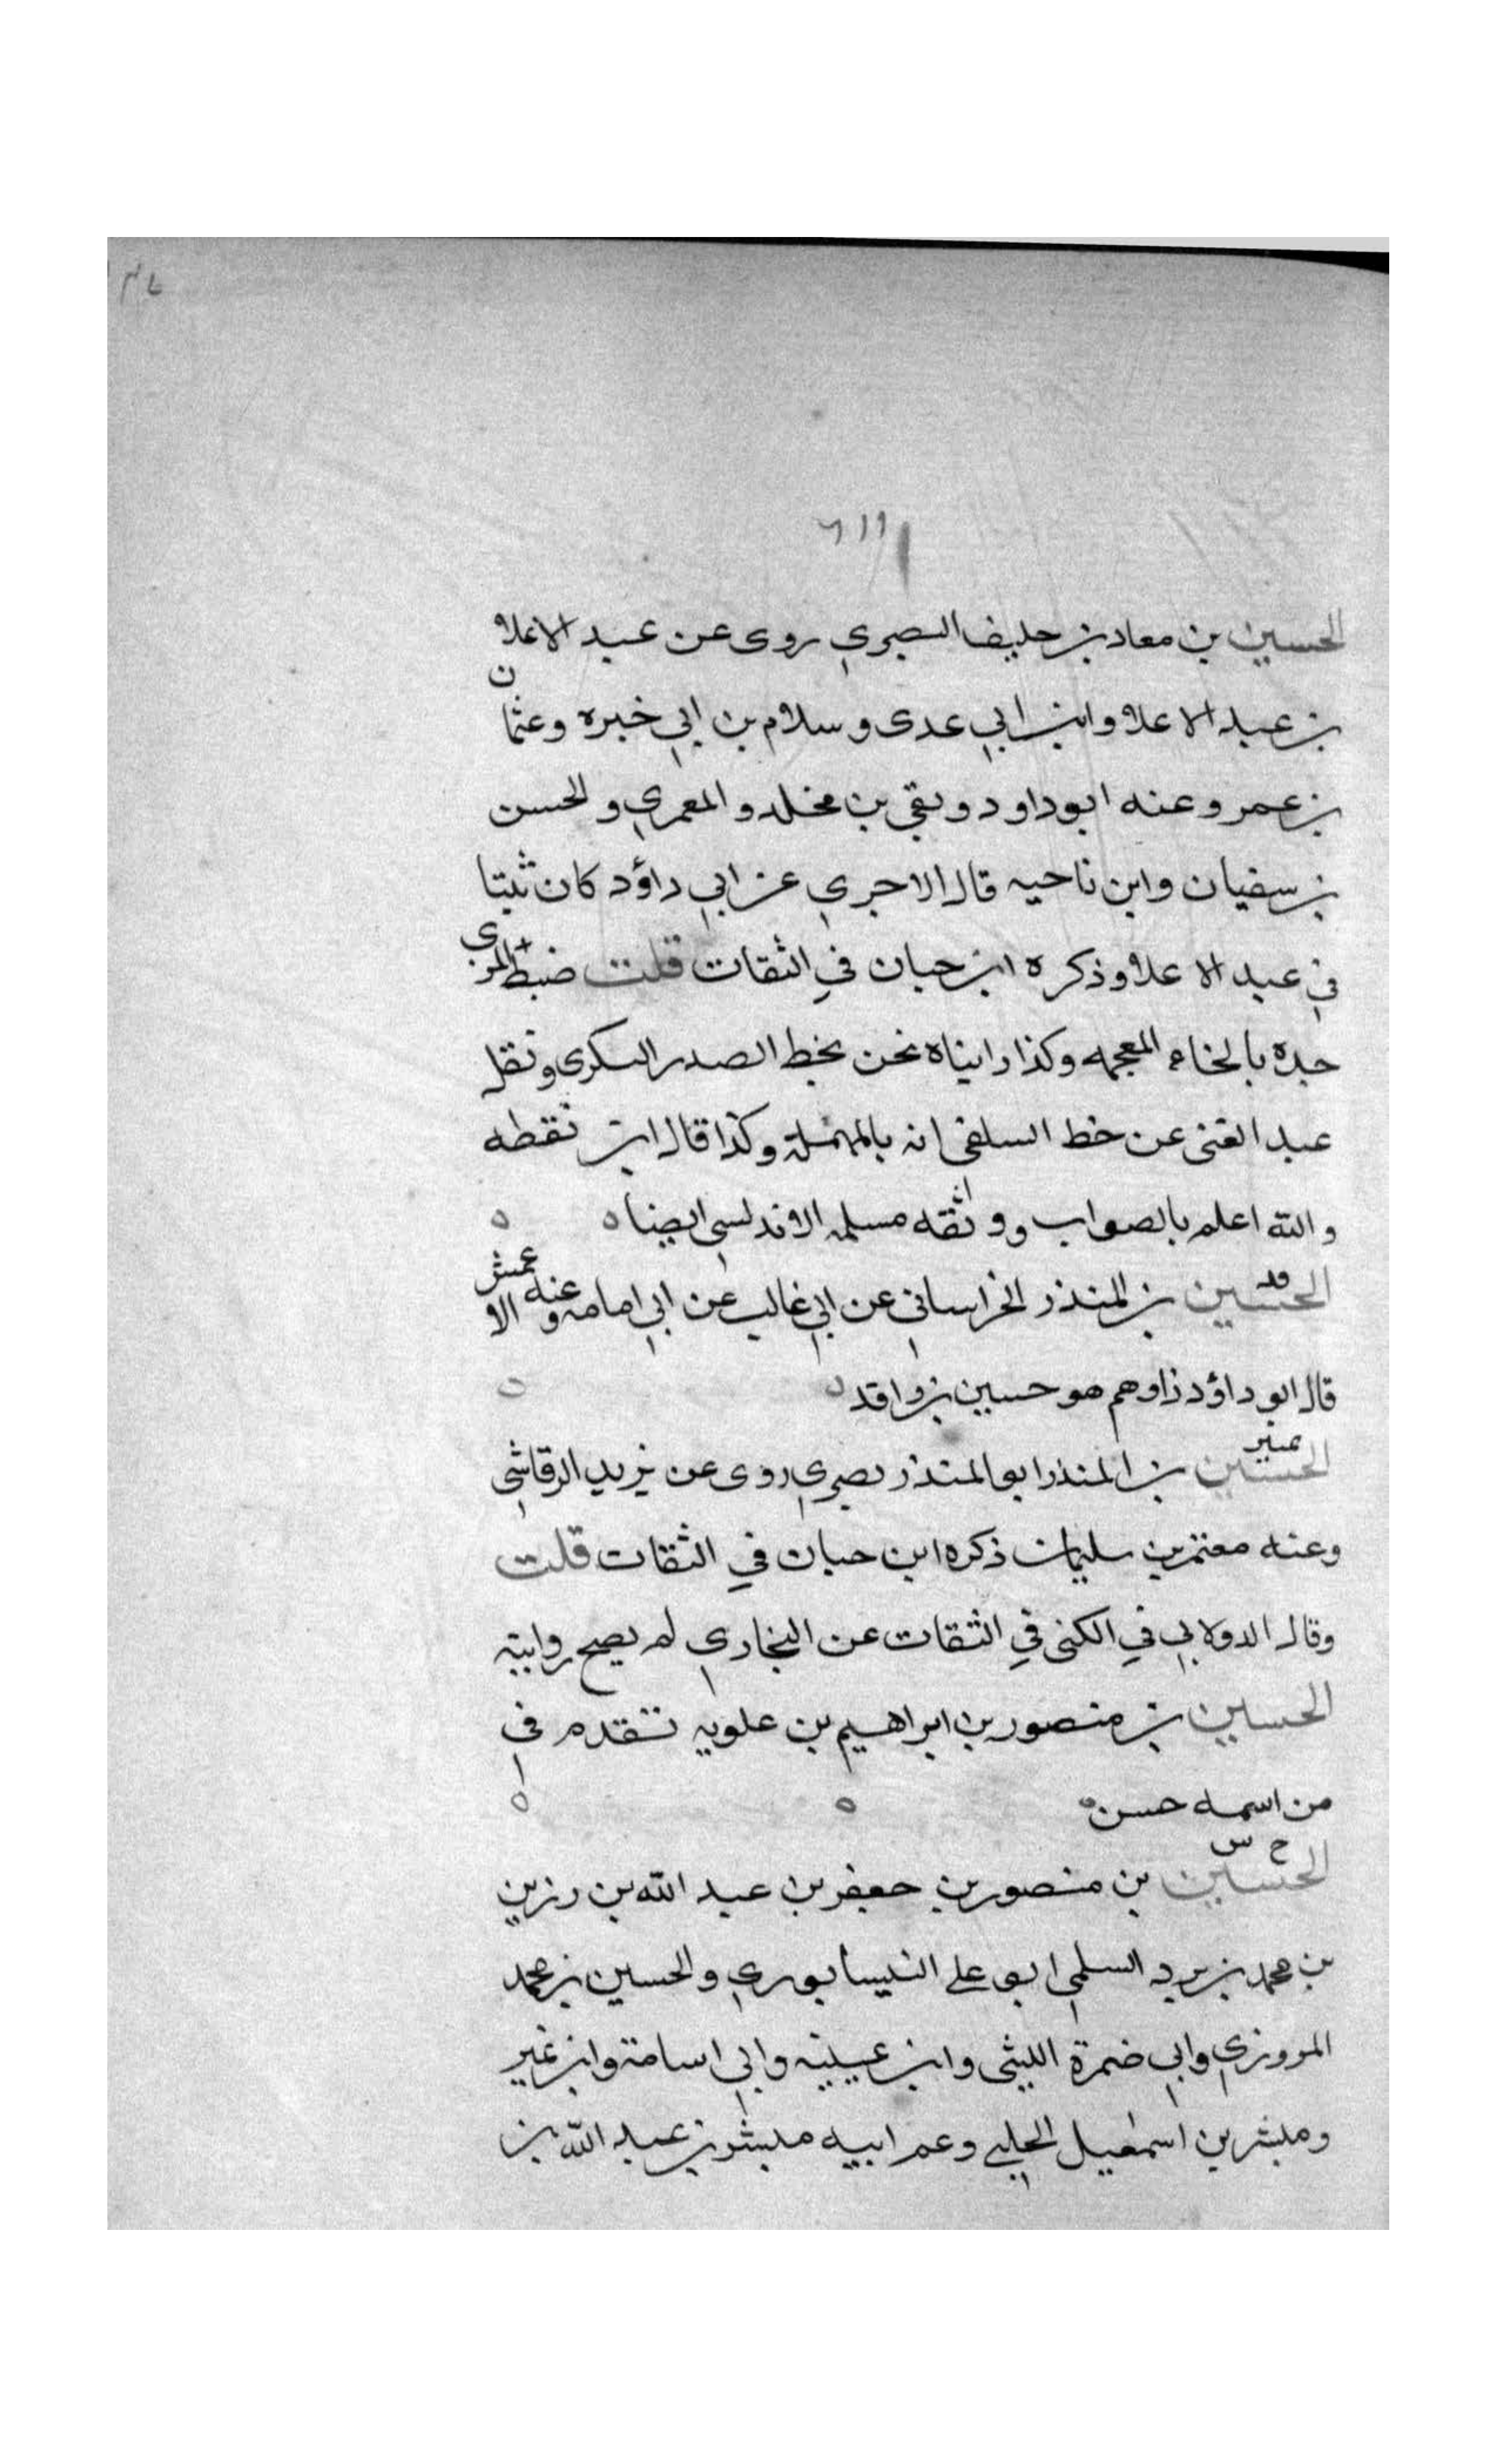 الحسين بن معاد بن حليف البصري روى عن عبد الاعلا
بن عبد الاعلا وابن ابي عدى وسلام بن ابي خبره وعثمان
بن عمر وعنه ابو داود وبقي بن مخلد والمعمري والحسن
بن سفيان وابن ناحيه قال الاجري عن ابي داؤد كان ثبتا
في عبد الاعلا وذكره ابن حبان في الثقات قلت ضبط المزى
جده بالخاء المعجمه وكذا رايناه نحن بخط الصدر البكرى ونقل
عبد الغنى عن خط السلفى انه بالمهملة وكذا قال ابن نقطه
والله اعلم بالصواب ووثقه مسلمه الاندلسي ايضا
الحسين بن المنذر الخراسانى عن ابي غالب عن ابي امامه وعنه الاعمش
قال ابو داؤد زاوهم هو حسين بن واقد
الحسين بن المنذر ابو المنذر بصري روى عن يزيد الرقاشي
وعنه معتمر بن سليمان ذكره ابن حبان في الثقات قلت
وقال الدولابي في الكنى في الثقات عن البخاري لم يصح روايته
الحسين بن منصور بن ابراهيم بن علويه تقدم في
من اسمه حسن
خ س
الحسين بن منصور بن جعفر بن عبد الله بن رزين
بن محمد بن برد السلمي ابو علي النيسابوري والحسين بن محمد
المروزي وابي ضمرة الليثى وابن عيينه وابي اسامة وابن نمير
ومبشر بن اسمعيل الحلبي وعم ابيه مبشر بن عبد الله بن